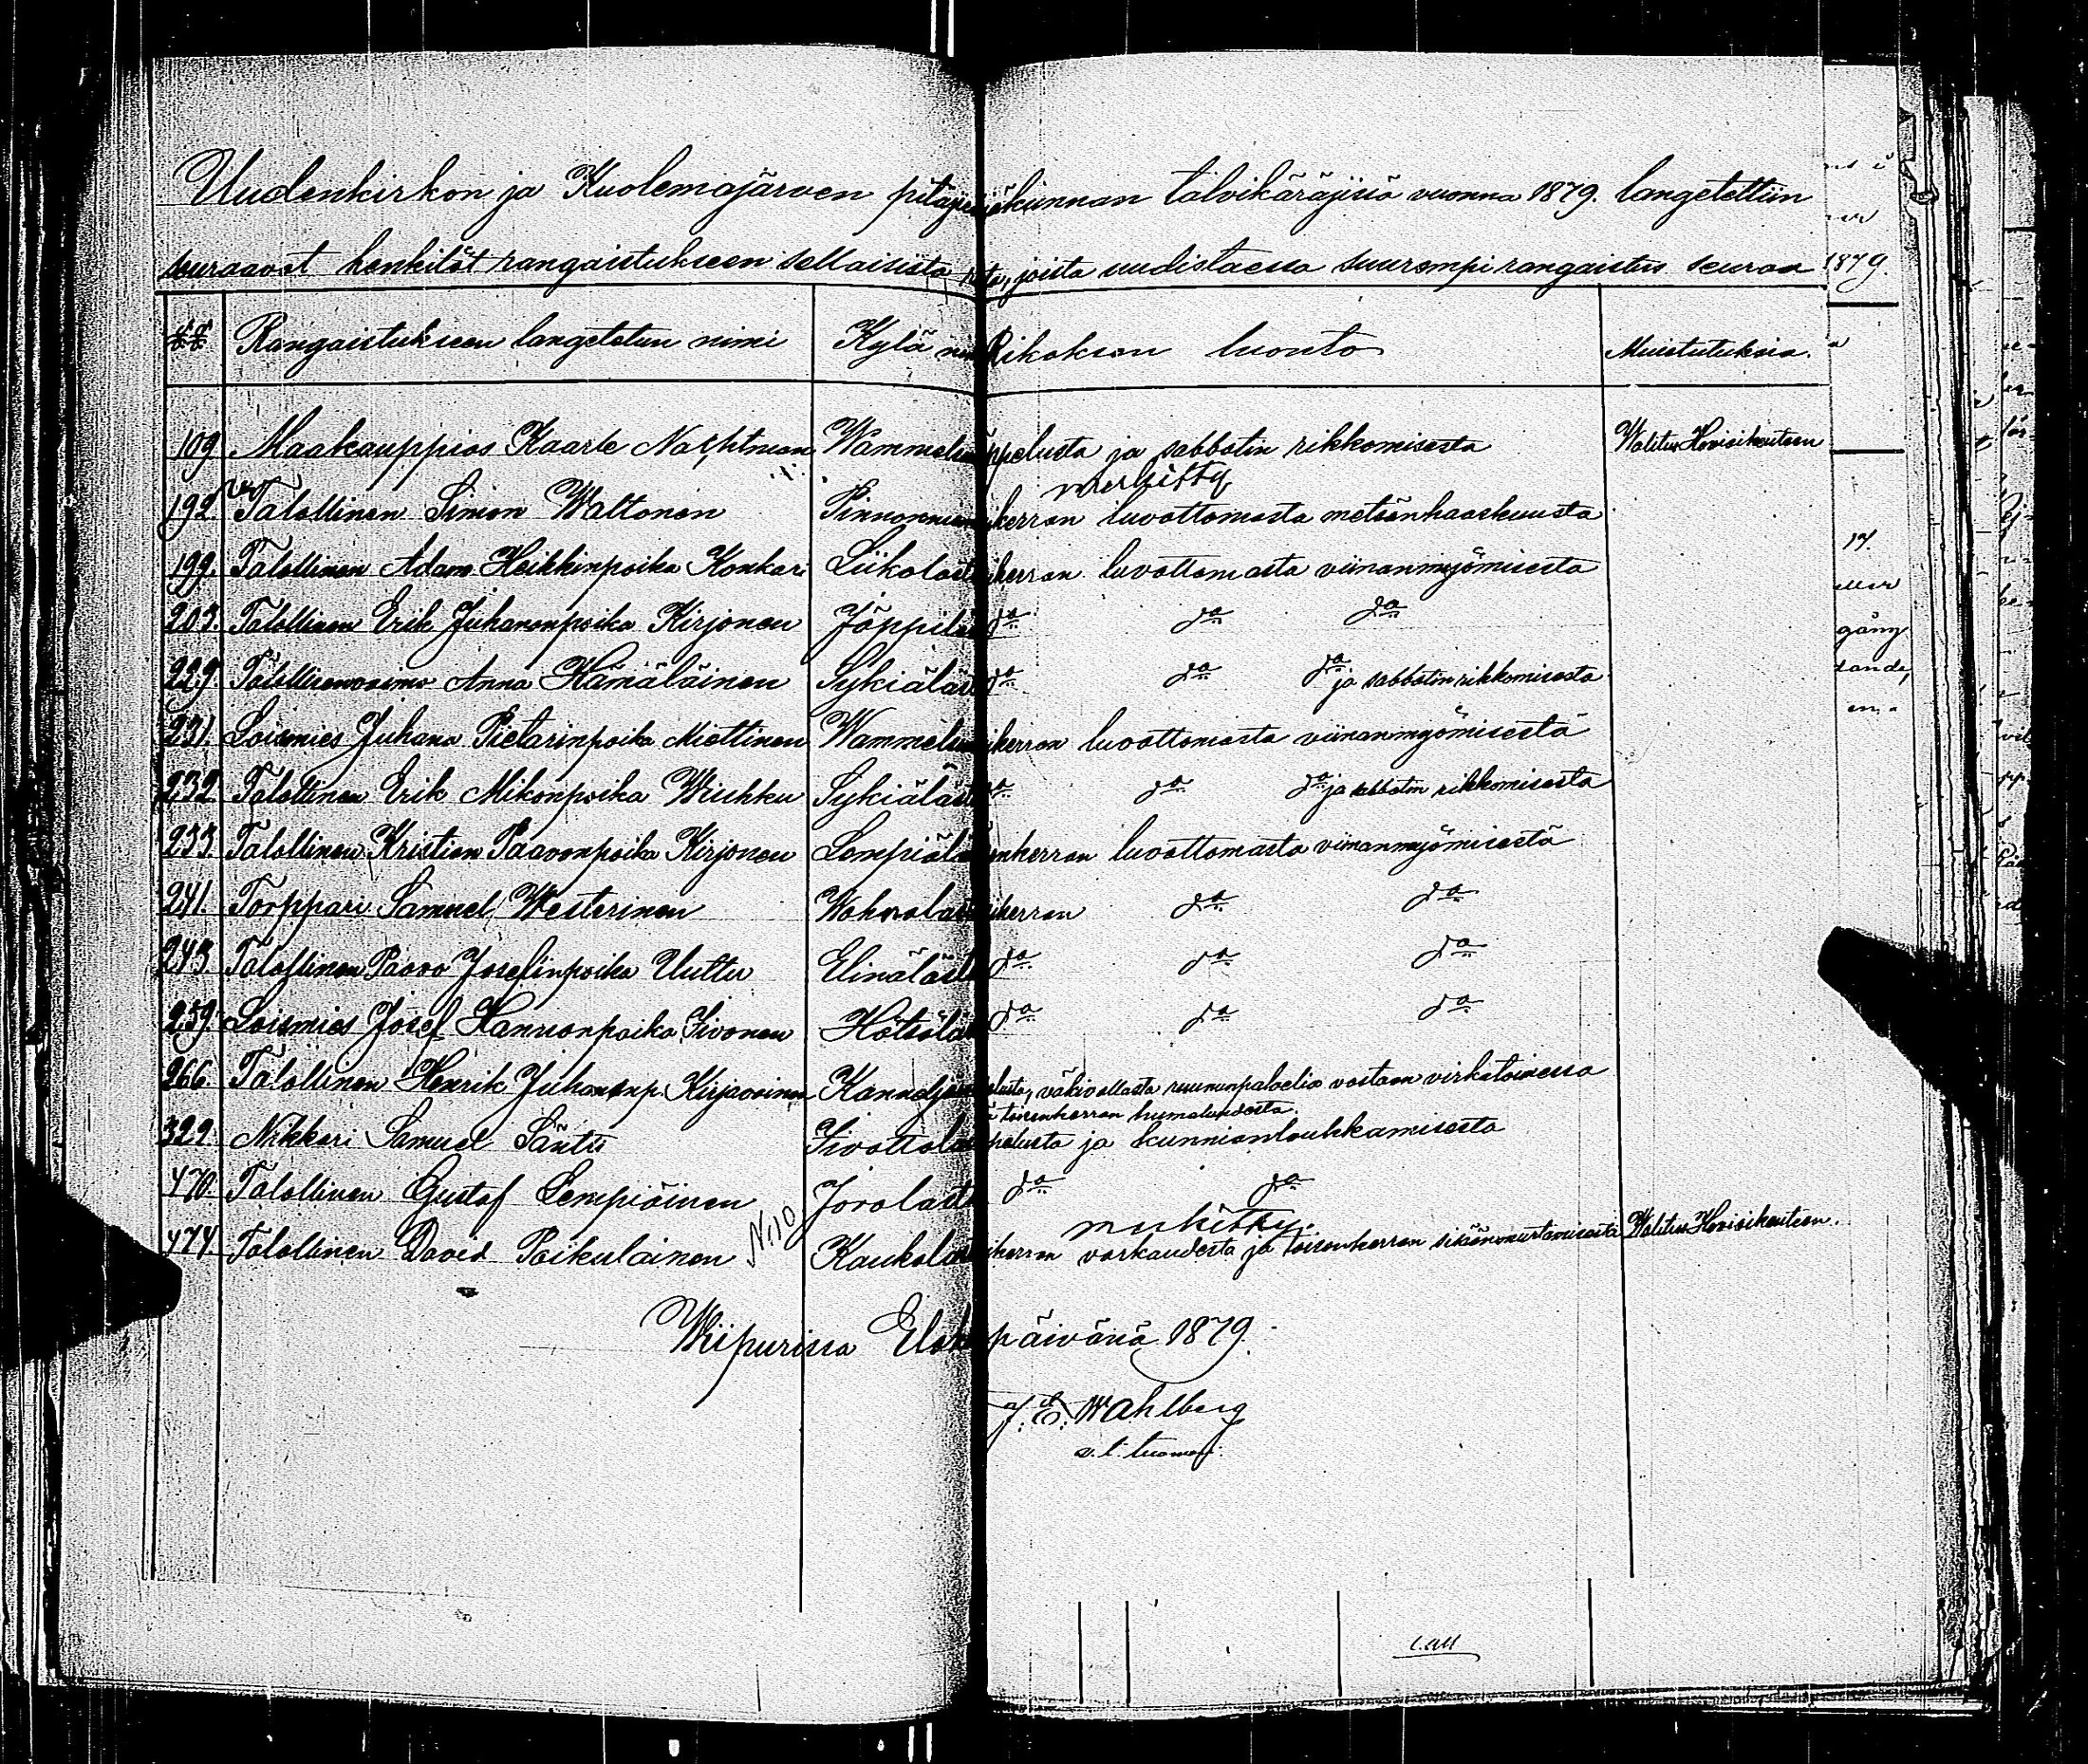 Uudenkirkon ja Kuolemajärven pitäjä kunnan talvikäräjissä vuonna 1879. langetettiin
seuraavat henkilöt rangaistukseen sellaisista joista uudistaessa suurempi rangaistus seuraa 1879.
Rangaistukseen langetetun nimi Kylä Rikoksen luonto Muistutuksia.
109 Maakauppias Kaarle Nachtman Wammels ppelusta ja sabbatin rikkomisesta Walitus Hovioikeuteen
merkitty
192. Talollinen Simon Waltonen Pinnonm kerran luvattomasta metsänhaaskuusta
199. Talollinen Adam Heikkinpoika Konkari Liikolast kerran luvattomasta viinanmyömisestä
203. Talollinen Erik Juhananpoika Kirjonen Jäppilä do do do
229. Talollisenvaimo Anna Hämäläinen Sykiäläst do do do ja sabbatin rikkomisesta
231. Loismies Juhana Pietarinpoika Miettinen Wammels ikerran luvattomasta viinanmyömisestä
232 Talollinen Erik Mikonpoika Wiuhku Sykiäläst do do do ja sabbatin rikkomisesta
233. Talollinen Kristian Paavonpoika Kirjonen Lempiälä enkerran luvattomasta viinanmyömisestä
241. Torppari Samuel Westerinen Wohnalast ikerran do do
243 Talollinen Paavo Josefinpoika Uuttu Elinäläst do do do
259. Loismies Josef Hannonpoika Sivonen Hötsölä do do do
266. Talollinen Henrik Juhananp. Kirjavainen Kannelj lusta, väkivallasta ruununpalvelia vastaan virkatoimessa
toisenkerran humalundesta.
329 Nikkari Samuel Säntti Sivottola pelusta ja kunnianloukkamisesta
470. Talollinen Gustaf Lempiäinen Jorolast do do
merkitty.
474 Talollinen David Paikulainen No. 10 Kaukola ikerran varkaudesta ja toisenkerran sisäänmurtamisesta Walitus Hovioikeuteen.
Wiipurissa Elok päivänä 1879.
J. E. Wahlberg
v. t. tuomari.